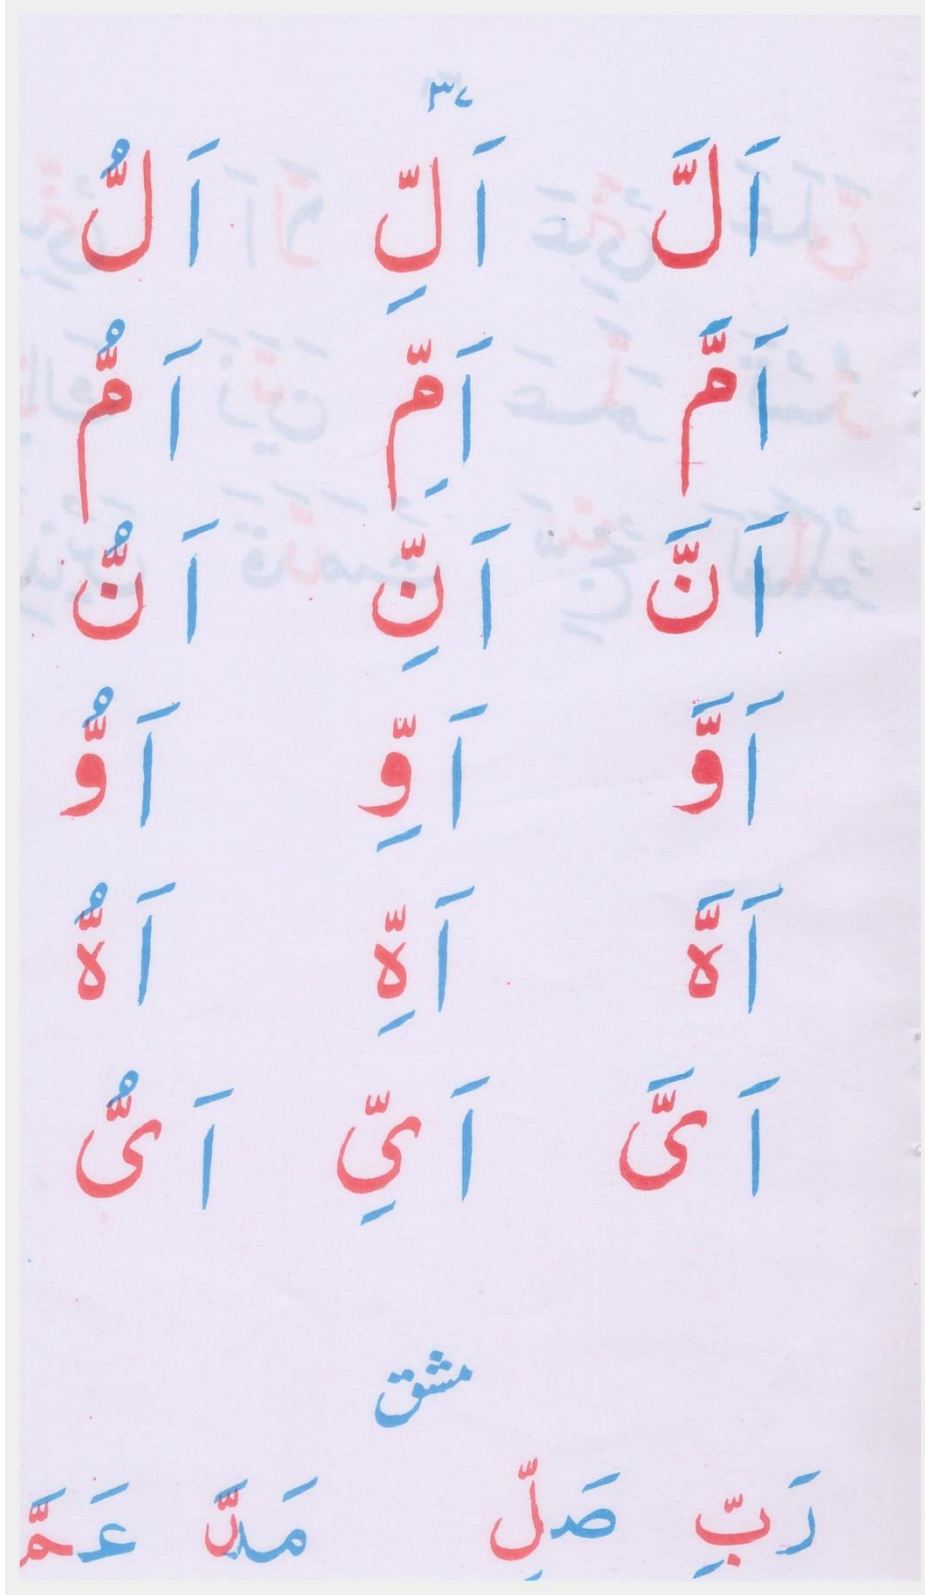 ۳۷
اَ لَّ اَ لِّ اَ لُّ
اَ مَّ اَ مِّ اَ مُّ
اَ نَّ اَ نِّ اَ نُّ
اَ وَّ اَ وِّ اَ وُّ
اَ ہَّ اَ ہِّ اَ ہُّ
اَ یَّ اَ یِّ اَ یُّ
مشق
رَبِّ صَلِّ عَمَّ